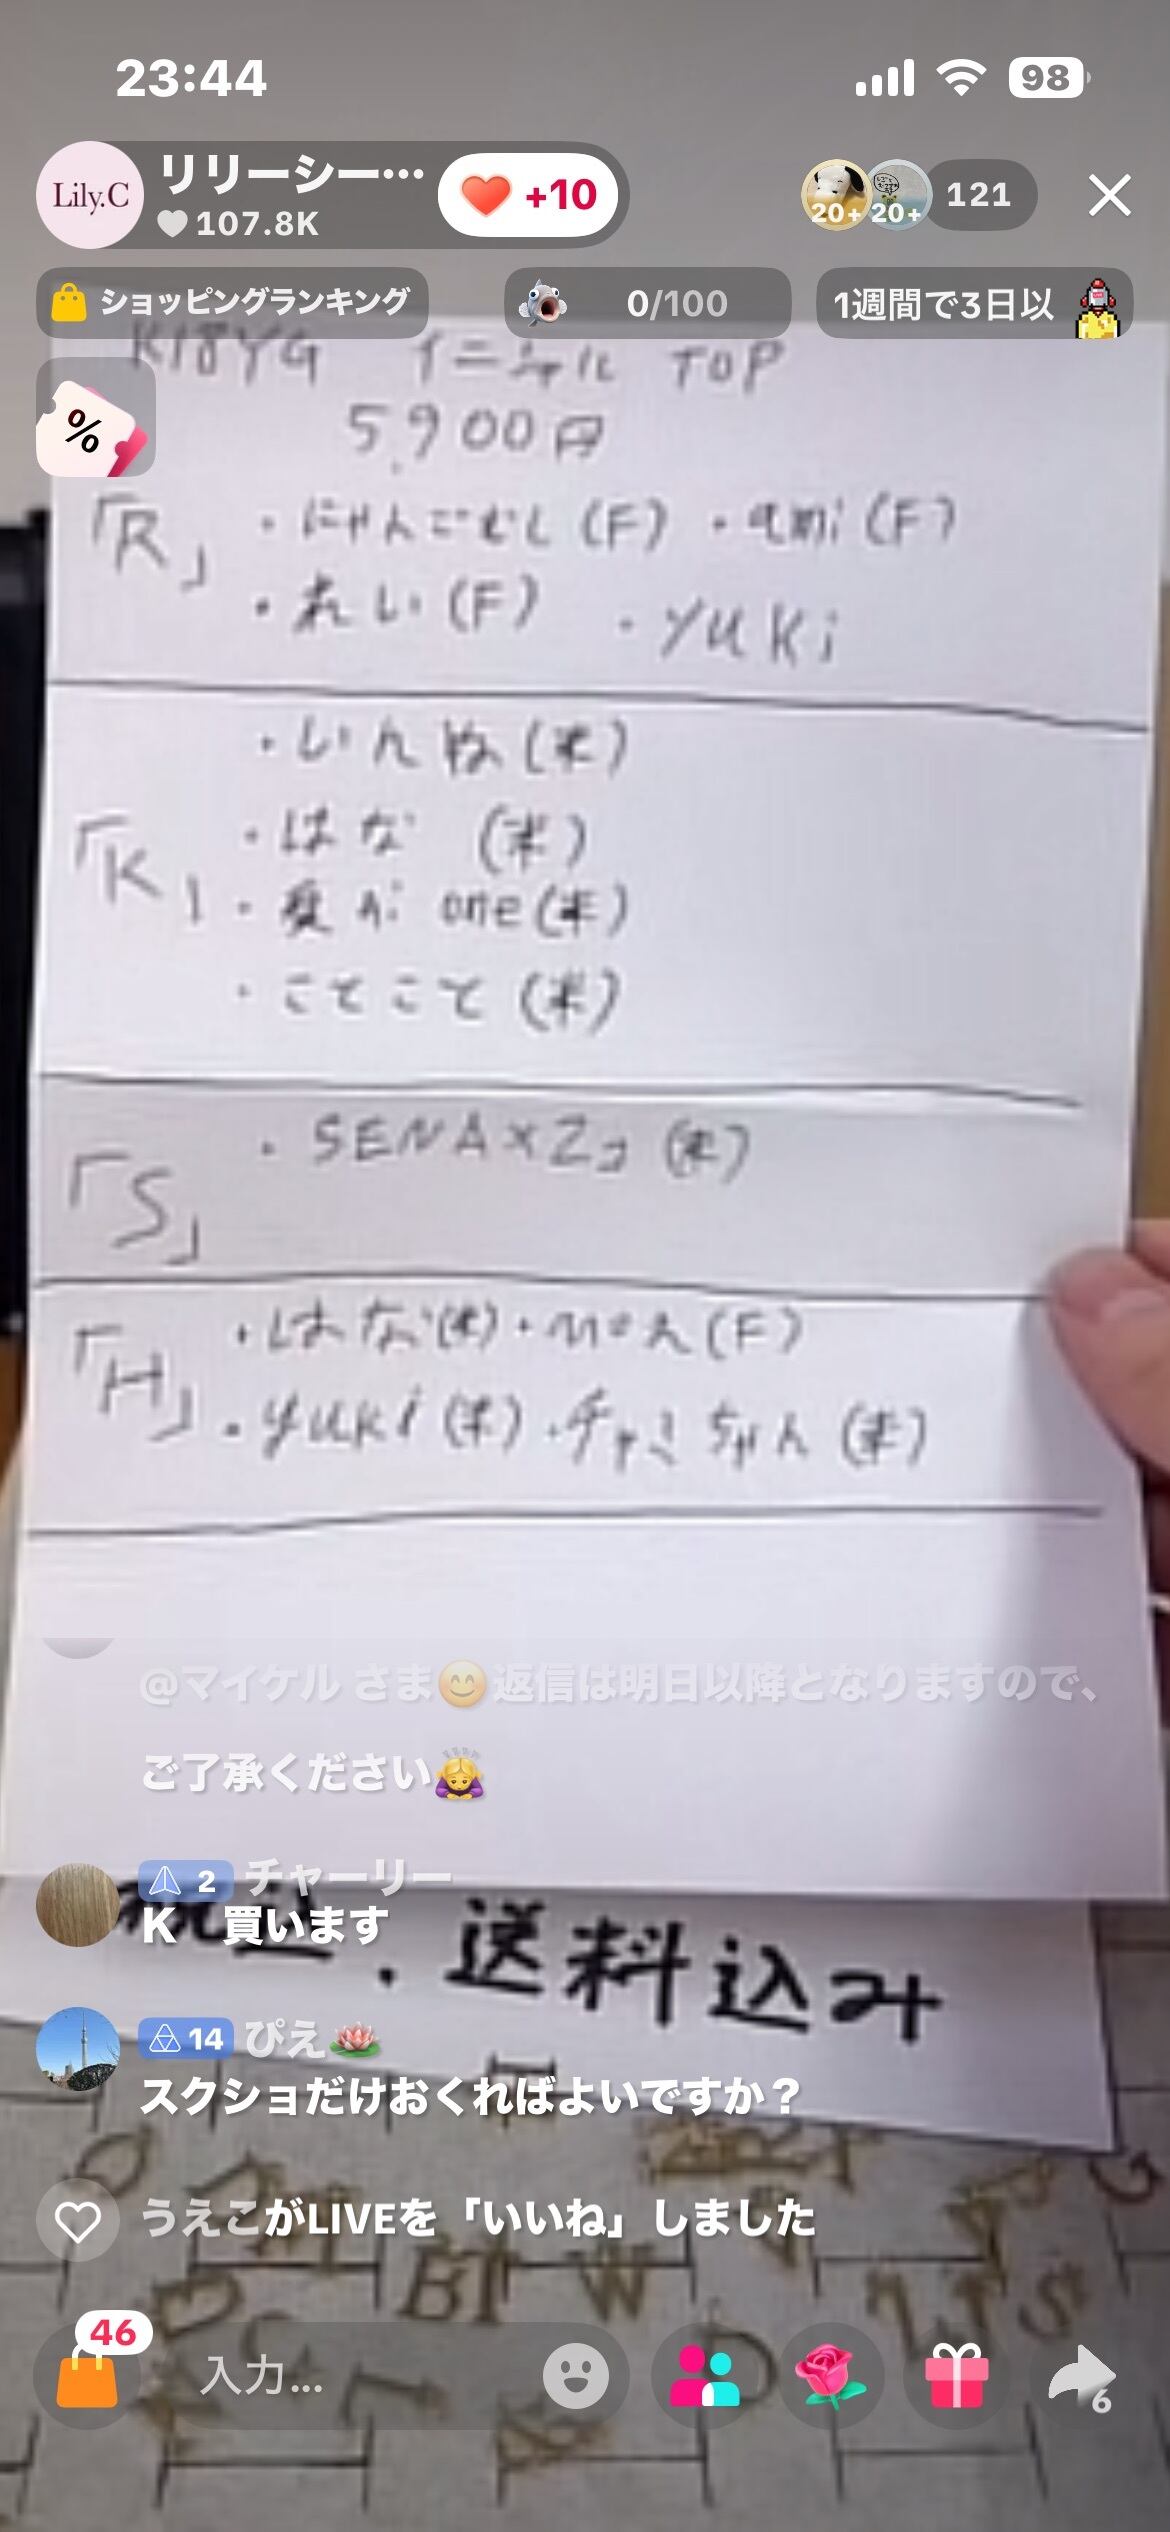 23:44
98
Lily.C
リリーシー…
107.8K
+10
20+
20+
121
ショッピングランキング
0/100
1週間で3日以
K18YG イニシャル TOP
%
5,900円
「R」
・にゃんこむし(F) ・ami(F)
・れい(F) ・yuki
「K」
・いんね(米)
・はな (米)
・愛が one(米)
・ことこと (米)
「S」
・SENA×2コ (米)
「H」
・はな(米)・moん(F)
・yuki(米)・チャミちゃん(米)
@マイケル さま😊返信は明日以降となりますので、
ご了承ください🙇‍♀️
2 チャーリー
K 買います
税込.送料込み
14 ぴえ🪷
スクショだけおくればよいですか？
うえこがLIVEを「いいね」しました
46
入力...
6